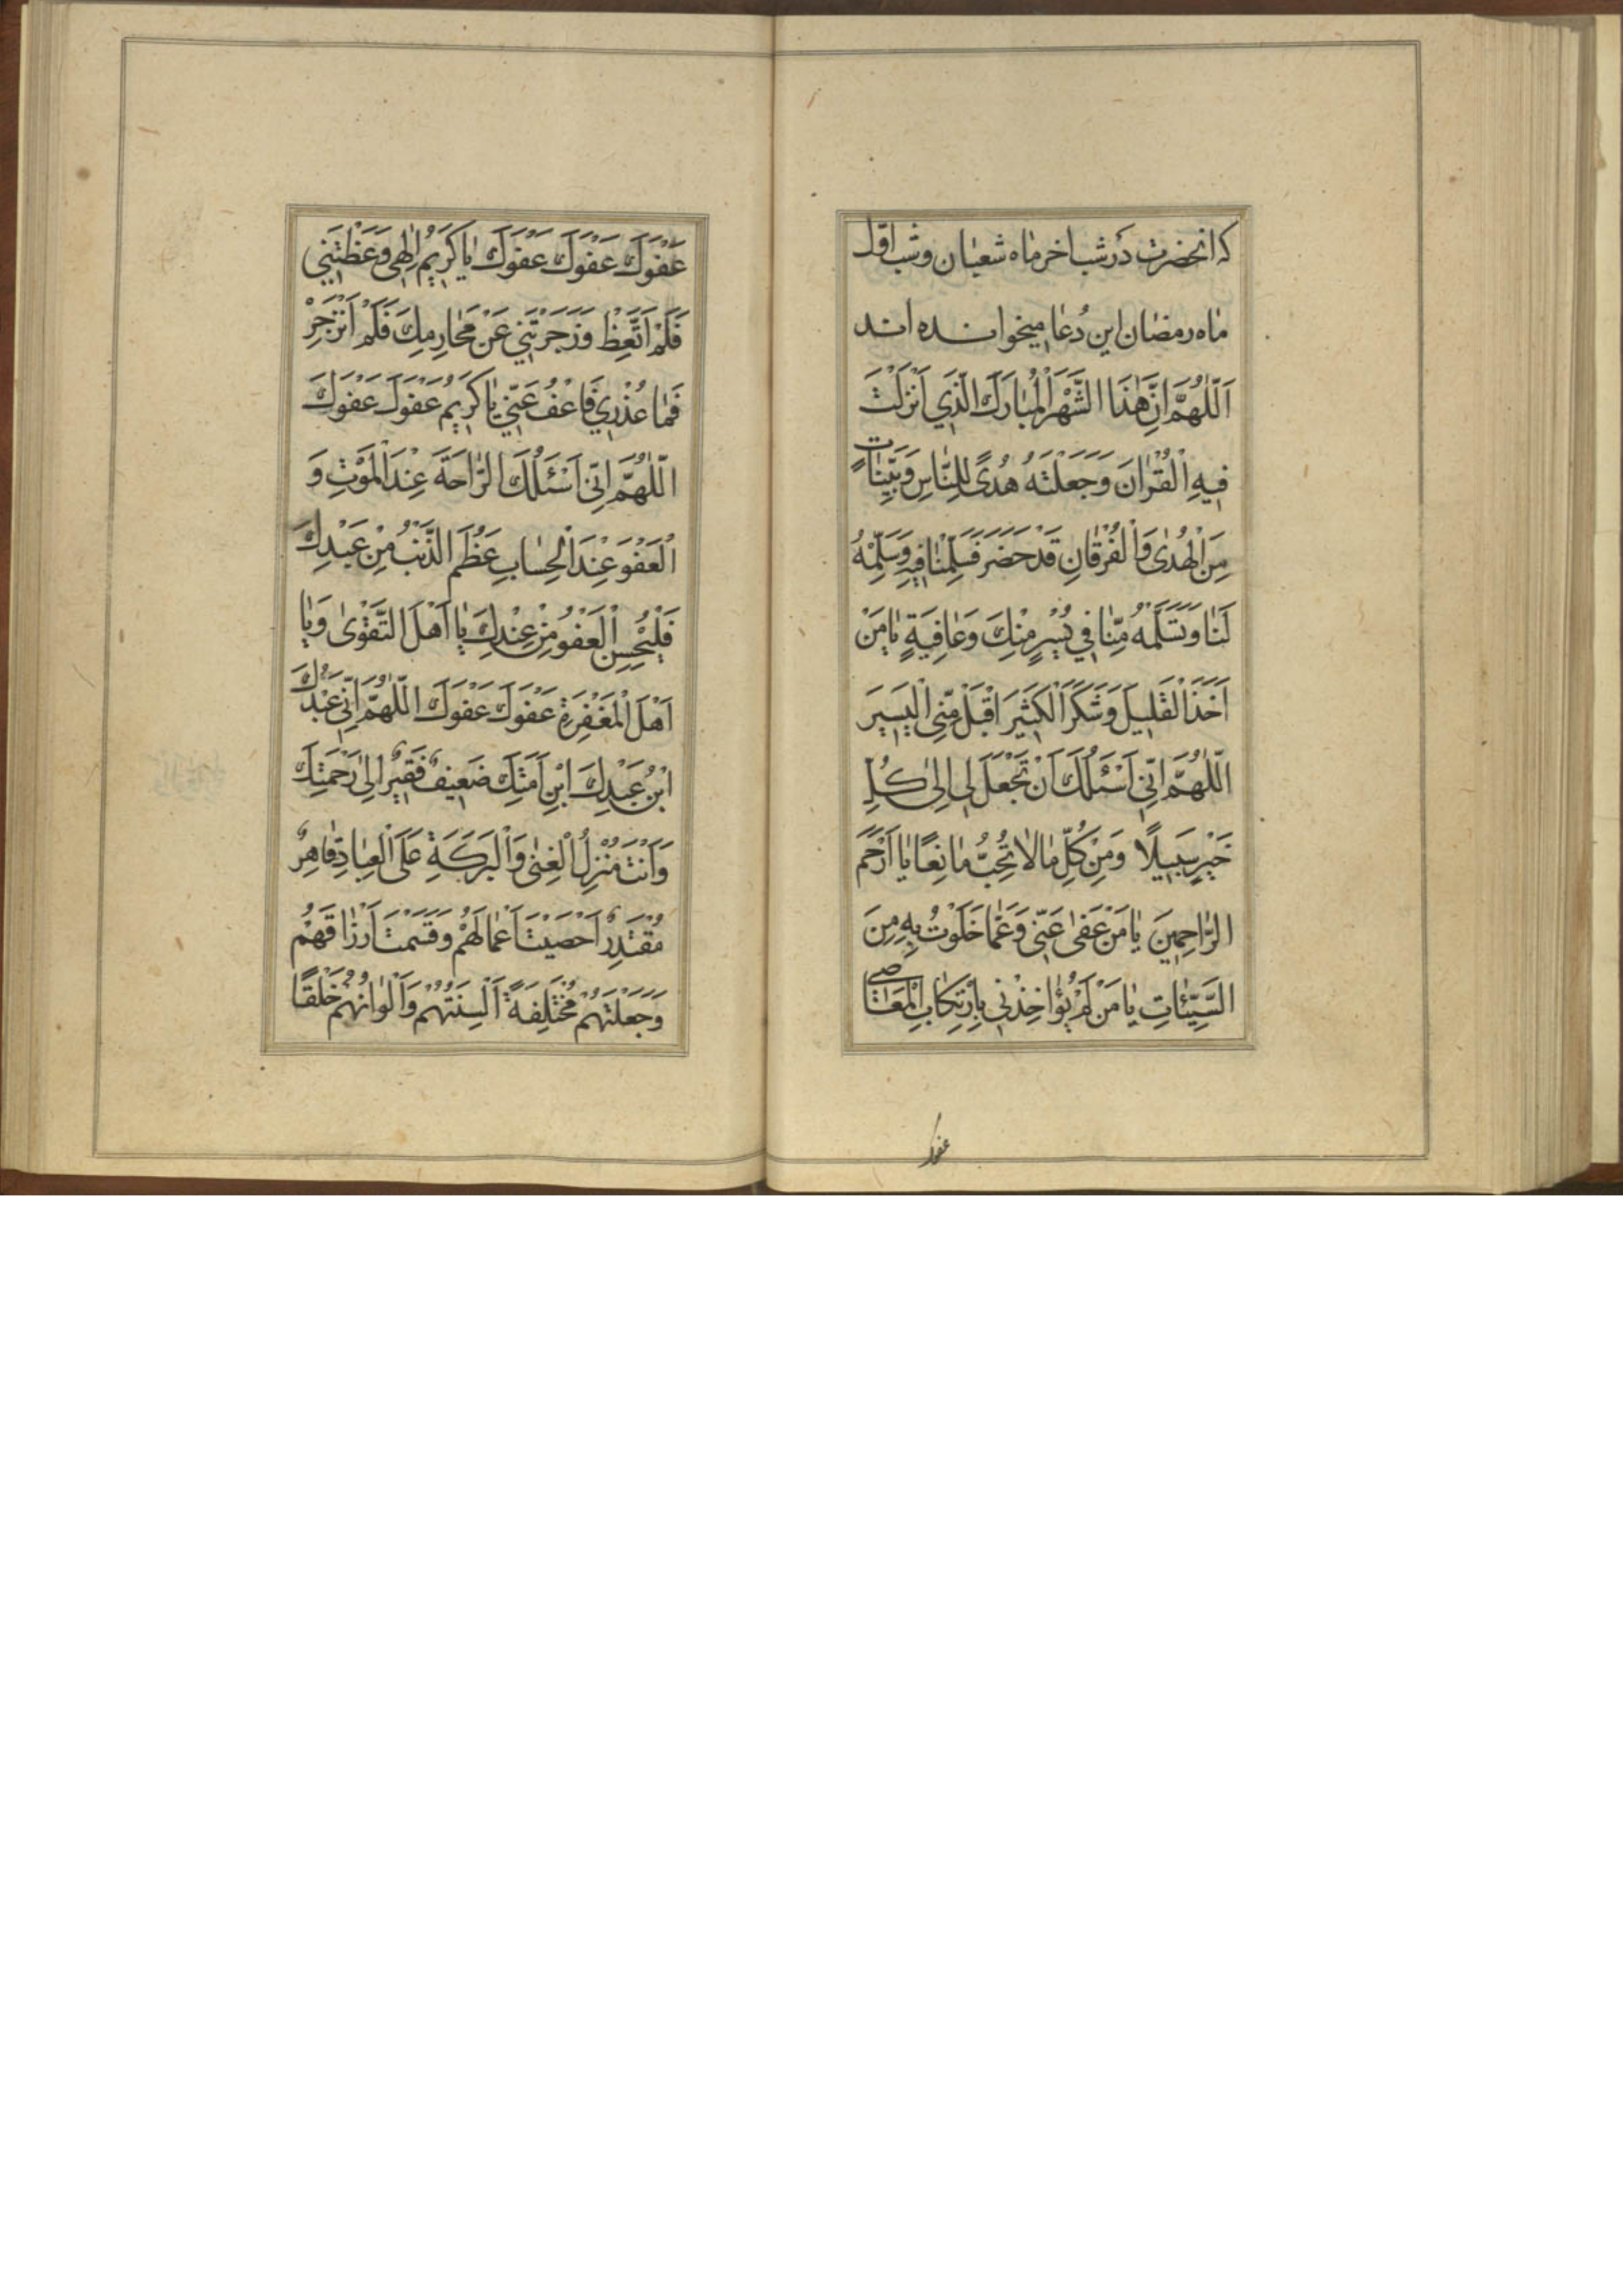 که انحضرت دَر شب اخر مٰاه شعبٰان و شب اوّل
مٰاه رمضٰان این دُعٰا میخوانده اند
اَللّٰهُمَّ اِنَّ هٰذَا الشَّهْرَ الْمُبٰارَكَ الَّذِي اَنْزَلْتَ
فِيهِ الْقُرْاٰنَ وَجَعَلْتَهُ هُدًى لِلنّٰاسِ وَبَيِّنٰاتٍ
مِنَ الْهُدٰى وَالْفُرْقٰانِ قَدْ حَضَرَ فَسَلِّمْنٰا فِيهِ وَسَلِّمْهُ
لَنٰا وَتَسَلَّمْهُ مِنّٰا فِي يُسْرٍ مِنْكَ وَعٰافِيَةٍ يٰا مَنْ
اَخَذَ الْقَلِيلَ وَشَكَرَ الْكَثِيرَ اقْبَلْ مِنِّي الْيَسِيرَ
اللّٰهُمَّ اِنِّي اَسْئَلُكَ اَنْ تَجْعَلَ لِي اِلىٰ كُلِّ
خَيْرٍ سَبِيلًا وَمِنْ كُلِّ مٰا لٰا تُحِبُّ مٰانِعًا يٰا اَرْحَمَ
الرّٰاحِمِينَ يٰا مَنْ عَفىٰ عَنِّي وَعَمّٰا خَلَوْتُ بِهِ مِنَ
السَّيِّئٰاتِ يٰا مَنْ لَمْ يُؤٰاخِذْنِي بِارْتِكٰابِ الْمَعٰاصِي
عفوك
عَفْوَكَ عَفْوَكَ عَفْوَكَ يٰا كَرِيمُ اِلٰهِي وَعَظْتَنِي
فَلَمْ اَتَّعِظْ وَزَجَرْتَنِي عَنْ مَحٰارِمِكَ فَلَمْ اَنْزَجِرْ
فَمٰا عُذْرِي فَاعْفُ عَنِّي يٰا كَرِيمُ عَفْوَكَ عَفْوَكَ
اللّٰهُمَّ اِنِّي اَسْئَلُكَ الرّٰاحَةَ عِنْدَ الْمَوْتِ وَ
الْعَفْوَ عِنْدَ الْحِسٰابِ عَظُمَ الذَّنْبُ مِنْ عَبْدِكَ
فَلْيَحْسِنِ الْعَفْوُ مِنْ عِنْدِكَ يٰا اَهْلَ التَّقْوٰى وَيٰا
اَهْلَ الْمَغْفِرَةِ عَفْوَكَ عَفْوَكَ اللّٰهُمَّ اِنِّي عَبْدُكَ
ابْنُ عَبْدِكَ ابْنِ اَمَتِكَ ضَعِيفٌ فَقِيرٌ اِلىٰ رَحْمَتِكَ
وَاَنْتَ مُنْزِلُ الْغِنٰى وَالْبَرَكَةِ عَلَى الْعِبٰادِ قٰاهِرٌ
مُقْتَدِرٌ اَحْصَيْتَ اَعْمٰالَهُمْ وَقَسَمْتَ اَرْزٰاقَهُمْ
وَجَعَلْتَهُمْ مُخْتَلِفَةً اَلْسِنَتُهُمْ وَاَلْوٰانُهُمْ خَلْقًا